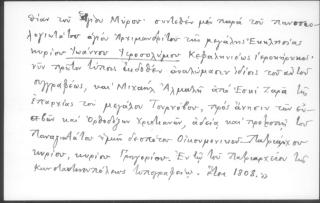 θίαν τοῦ ἁγίου Μύρου. συντεθὲν μὲν παρὰ τοῦ πανοσιο-
λογιωτάτου ἁγίου Ἀρχιμανδρίτου τῆς μεγάλης Ἐκκλησίας
κυρίου Ἰωάννου Ἱεροσολύμου Κεφαλληνιέως Ἱεροκήρυκος.
νῦν πρῶτον τύποις ἐκδοθὲν ἀναλώμασιν ἰδίοις τοῦ
συγγραφέως, καὶ Μιχαὴλ ἀπὸ παρὰ τῆς
ἐπαρχίας τοῦ μεγάλου Τουρνόβου, πρὸς τῶν εὐ-
σεβῶν καὶ Ὀρθοδόξων Χριστιανῶν, ἀδείᾳ καὶ προτροπῇ τοῦ
Παναγιωτάτου ἡμῶν δεσπότου Οἰκουμενικοῦ Πατριάρχου
κυρίου, κυρίου Γρηγορίου. Ἐν τῷ τοῦ Πατριαρχείου τῆς
Κωνσταντινουπόλεως τυπογραφείῳ. Ἔτει 1808.»